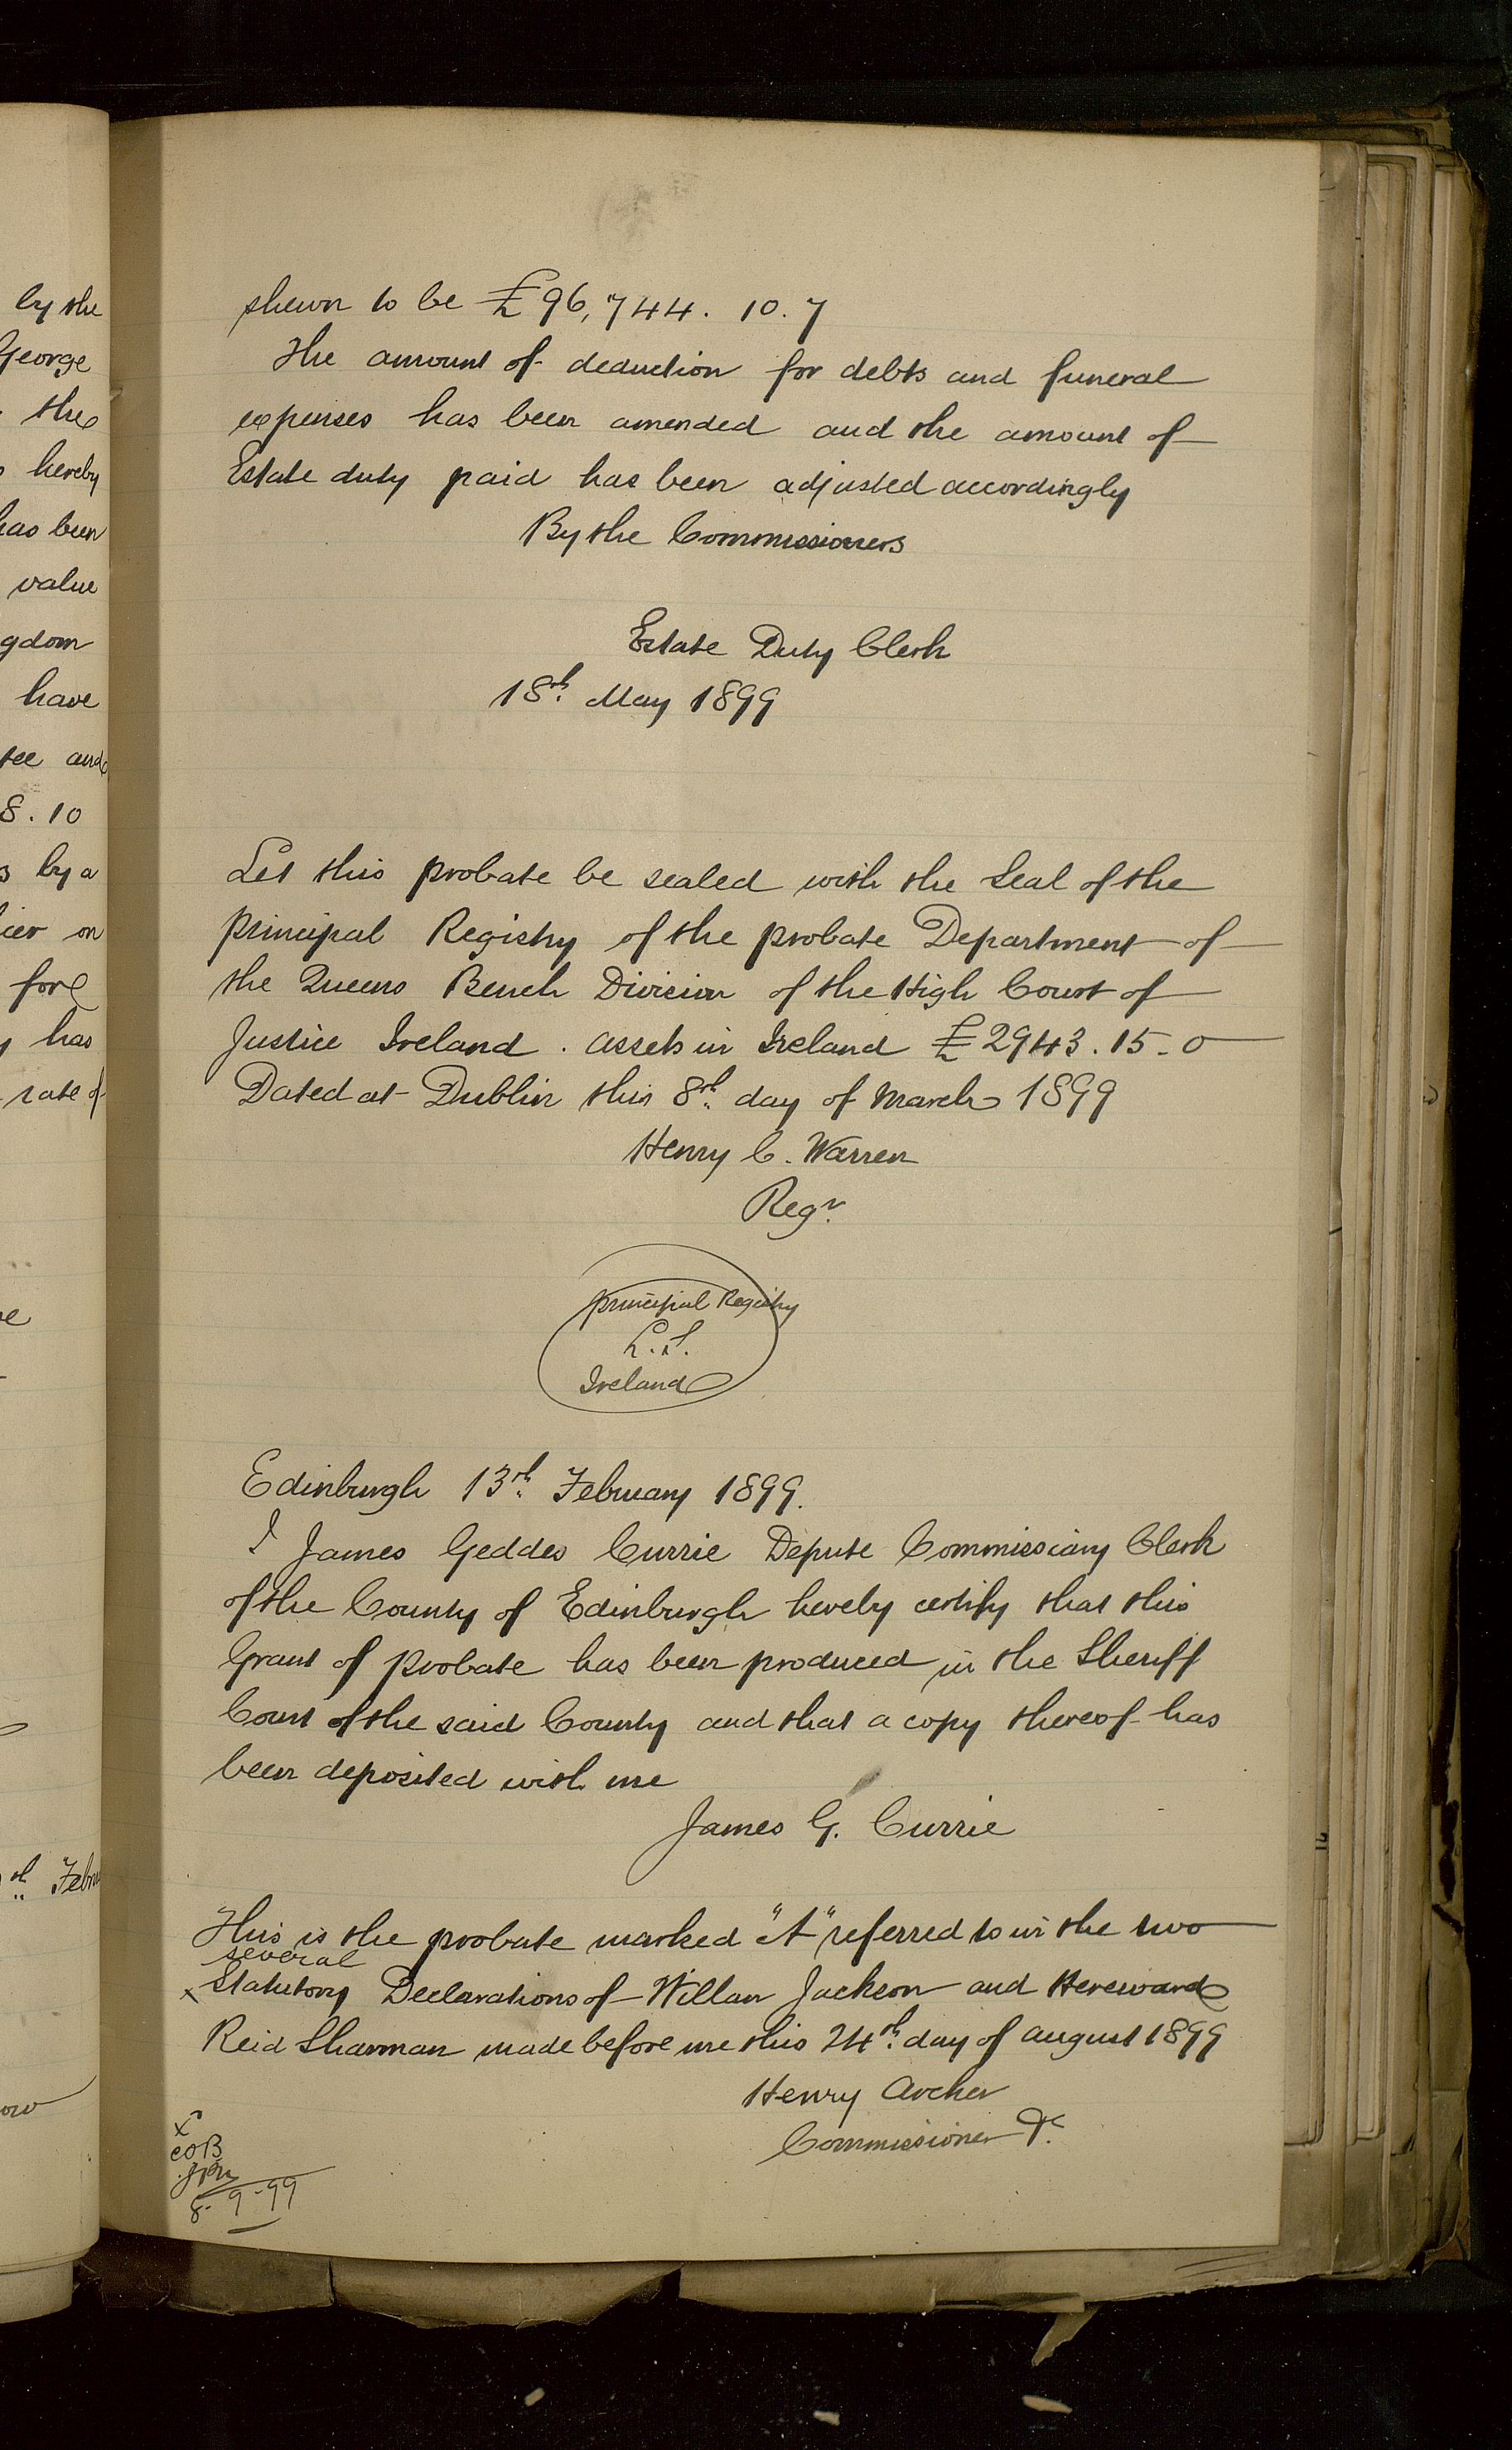 by the
George
the
hereby
has been
value
gdom
have
tee and
8.10
s by a
ier on
for
y has
rate of
th Febru
shewn to be £96,744. 10. 7
The amount of deduction for debts and funeral
expenses has been amended and the amount of
Estate duty paid has been adjusted accordingly
By the Commissioners
Estate Duty Clerk
18th May 1899
Let this probate be sealed with the Seal of the
principal Registry of the probate Department of
the Queens Bench Division of the High Court of
Justice Ireland. assets in Ireland £2943.15.0
Dated at Dublin this 8th day of March 1899
Henry C. Warren
Regr.
principal Registry
L.S.
Ireland
Edinburgh 13th February 1899.
I James Geddes Currie Depute Commissary Clerk
of the County of Edinburgh hereby certify that this
Grant of probate has been produced in the Sheriff
Court of the said County and that a copy thereof has
been deposited with me
James G. Currie
This is the probate marked "A" referred to in the two
several
x Statutory Declarations of Willan Jackson and Hereward
Reid Sharman made before me this 24th day of august 1899
Henry Archer
Commissioner &c.
x
COB
8-9-99